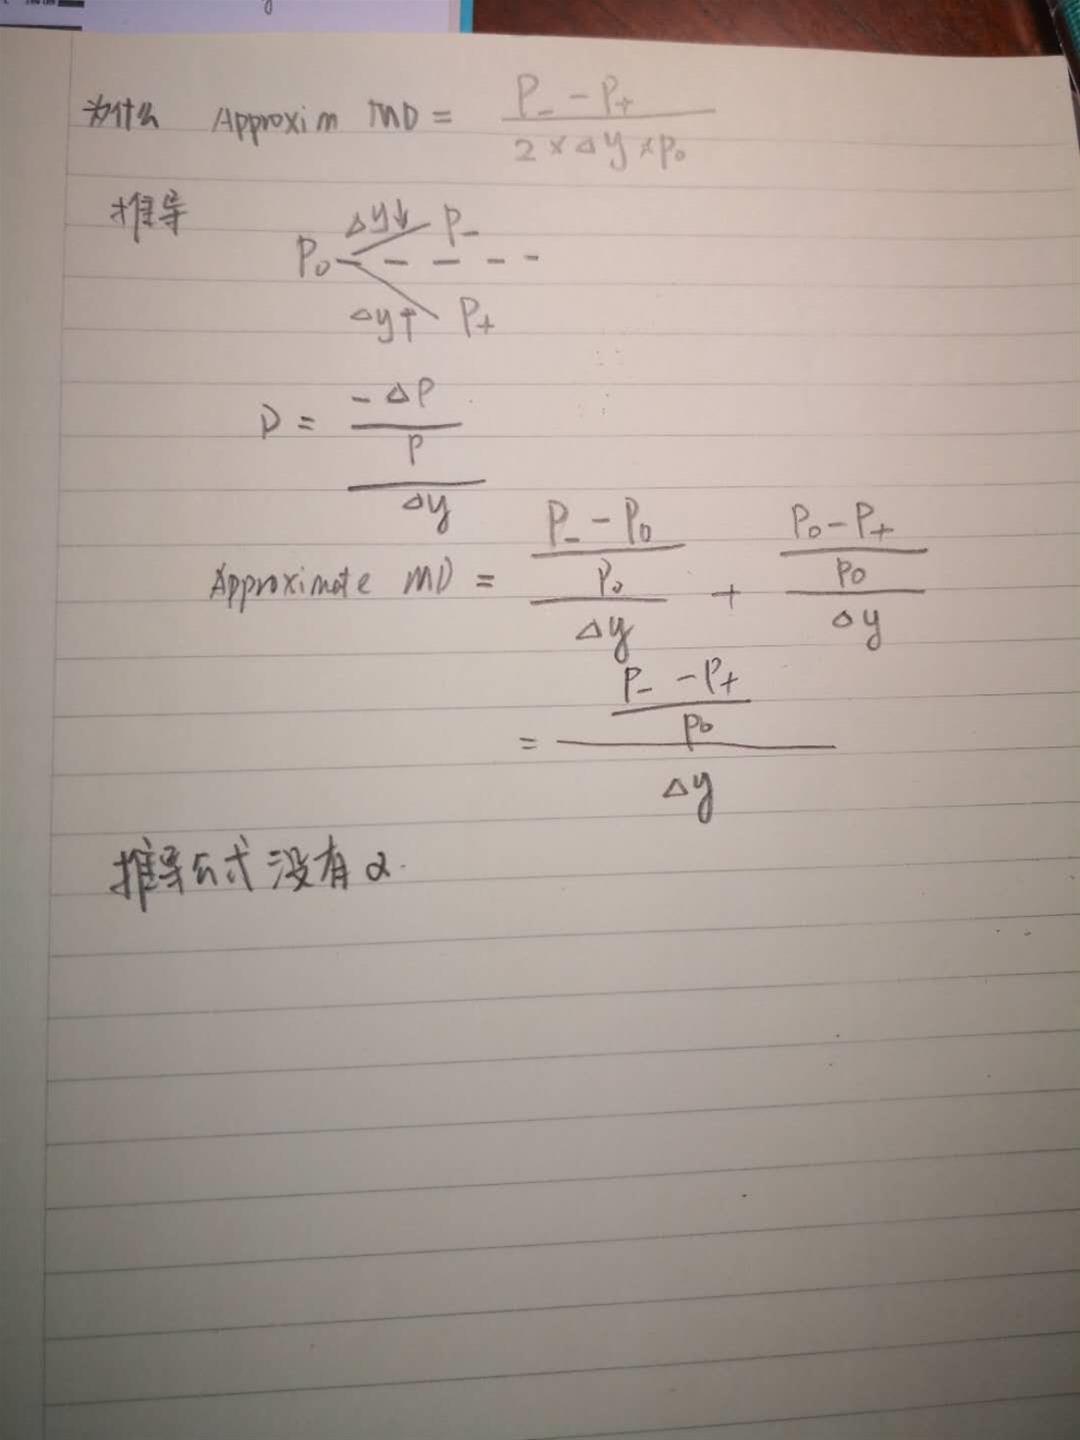 为什么 Approxim MD = (P₋ - P₊) / (2 × Δy × P₀)
推导
Δy↓ P₋
P₀
Δy↑ P₊
D = (-ΔP / P) / Δy
Approximate MD = ((P₋ - P₀) / P₀) / Δy + ((P₀ - P₊) / P₀) / Δy
= ((P₋ - P₊) / P₀) / Δy
推导公式没有2.